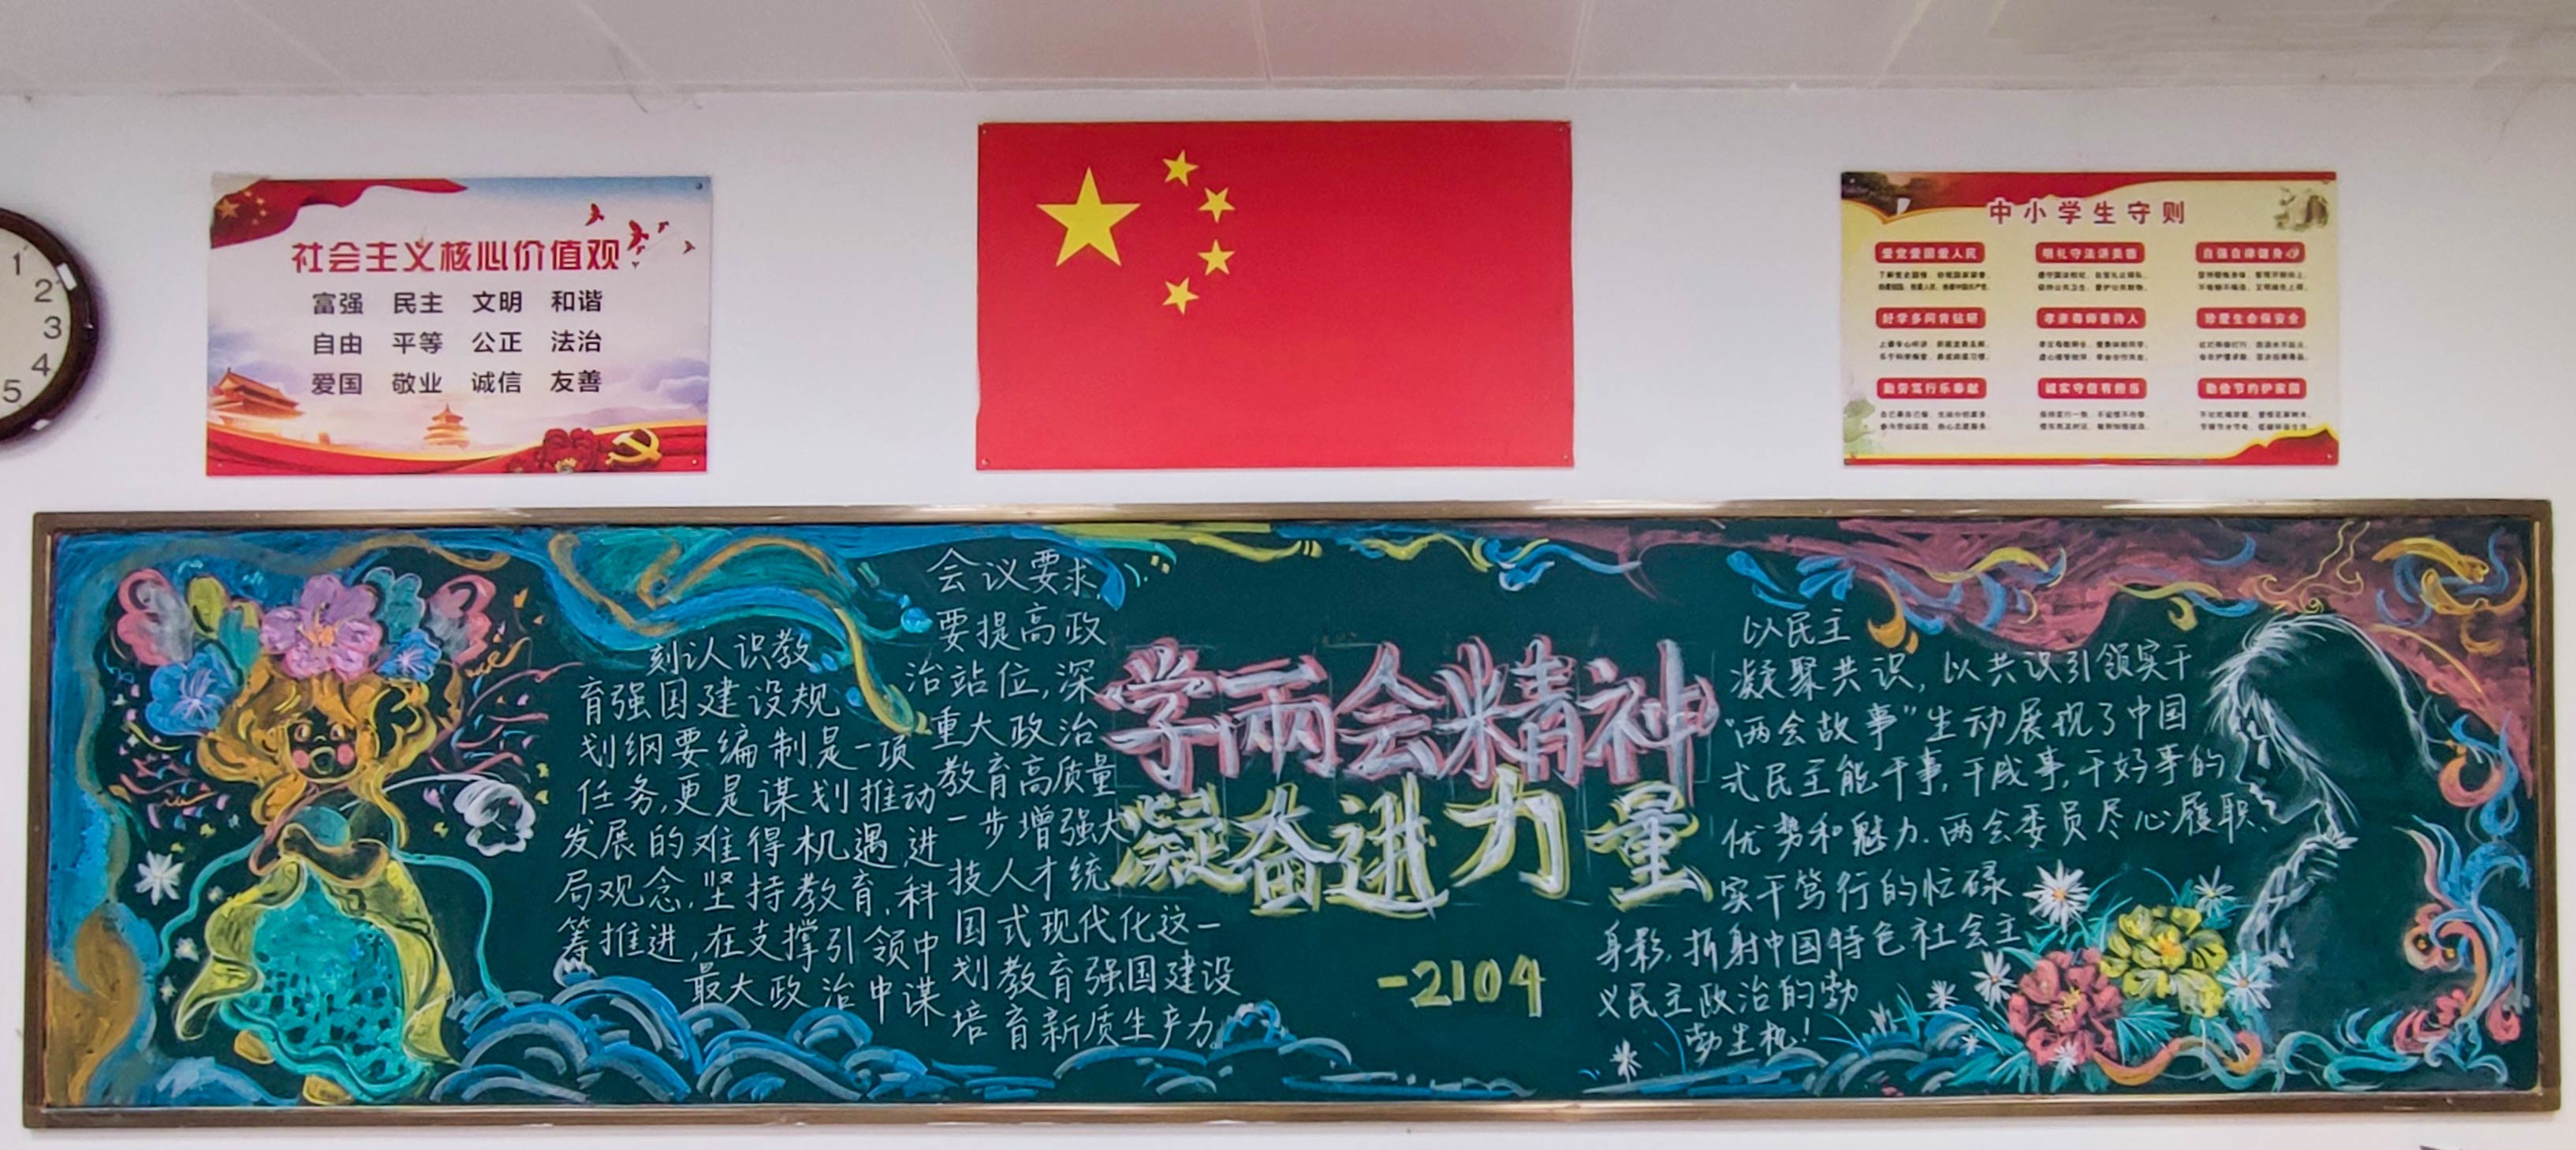 1
2
3
4
5
社会主义核心价值观
富强 民主 文明 和谐
自由 平等 公正 法治
爱国 敬业 诚信 友善
中小学生守则
爱党爱国爱人民
明礼守法讲美德
自强自律健身心
好学多问肯钻研
孝亲尊师善待人
珍爱生命保安全
勤劳笃行乐奉献
诚实守信有担当
勤俭节约护家园
刻认识教
育强国建设规
划纲要编制是一项
任务,更是谋划推动
发展的难得机遇,进
局观念,坚持教育,科
筹推进,在支撑引领中
最大政治中谋
会议要求,
要提高政
治站位,深
重大政治
教育高质量
一步增强大
技人才统
国式现代化这一
划教育强国建设
培育新质生产力。
学两会精神
凝奋进力量
-2104
以民主
凝聚共识,以共识引领实干
“两会故事”生动展现了中国
式民主能干事,干成事,干好事的
优势和魅力.两会委员尽心履职、
实干笃行的忙碌
身影,折射中国特色社会主
义民主政治的勃
勃生机!